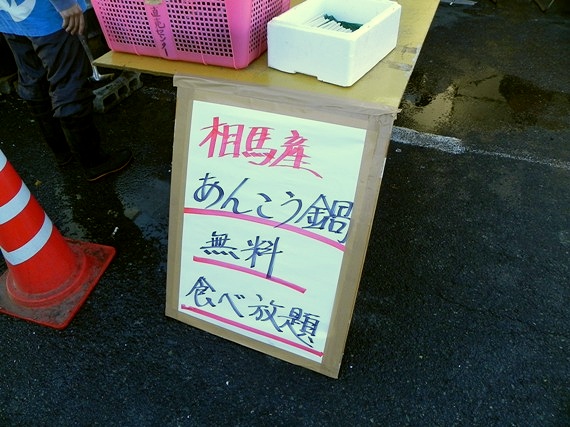 相馬産
あんこう鍋
無料
食べ放題